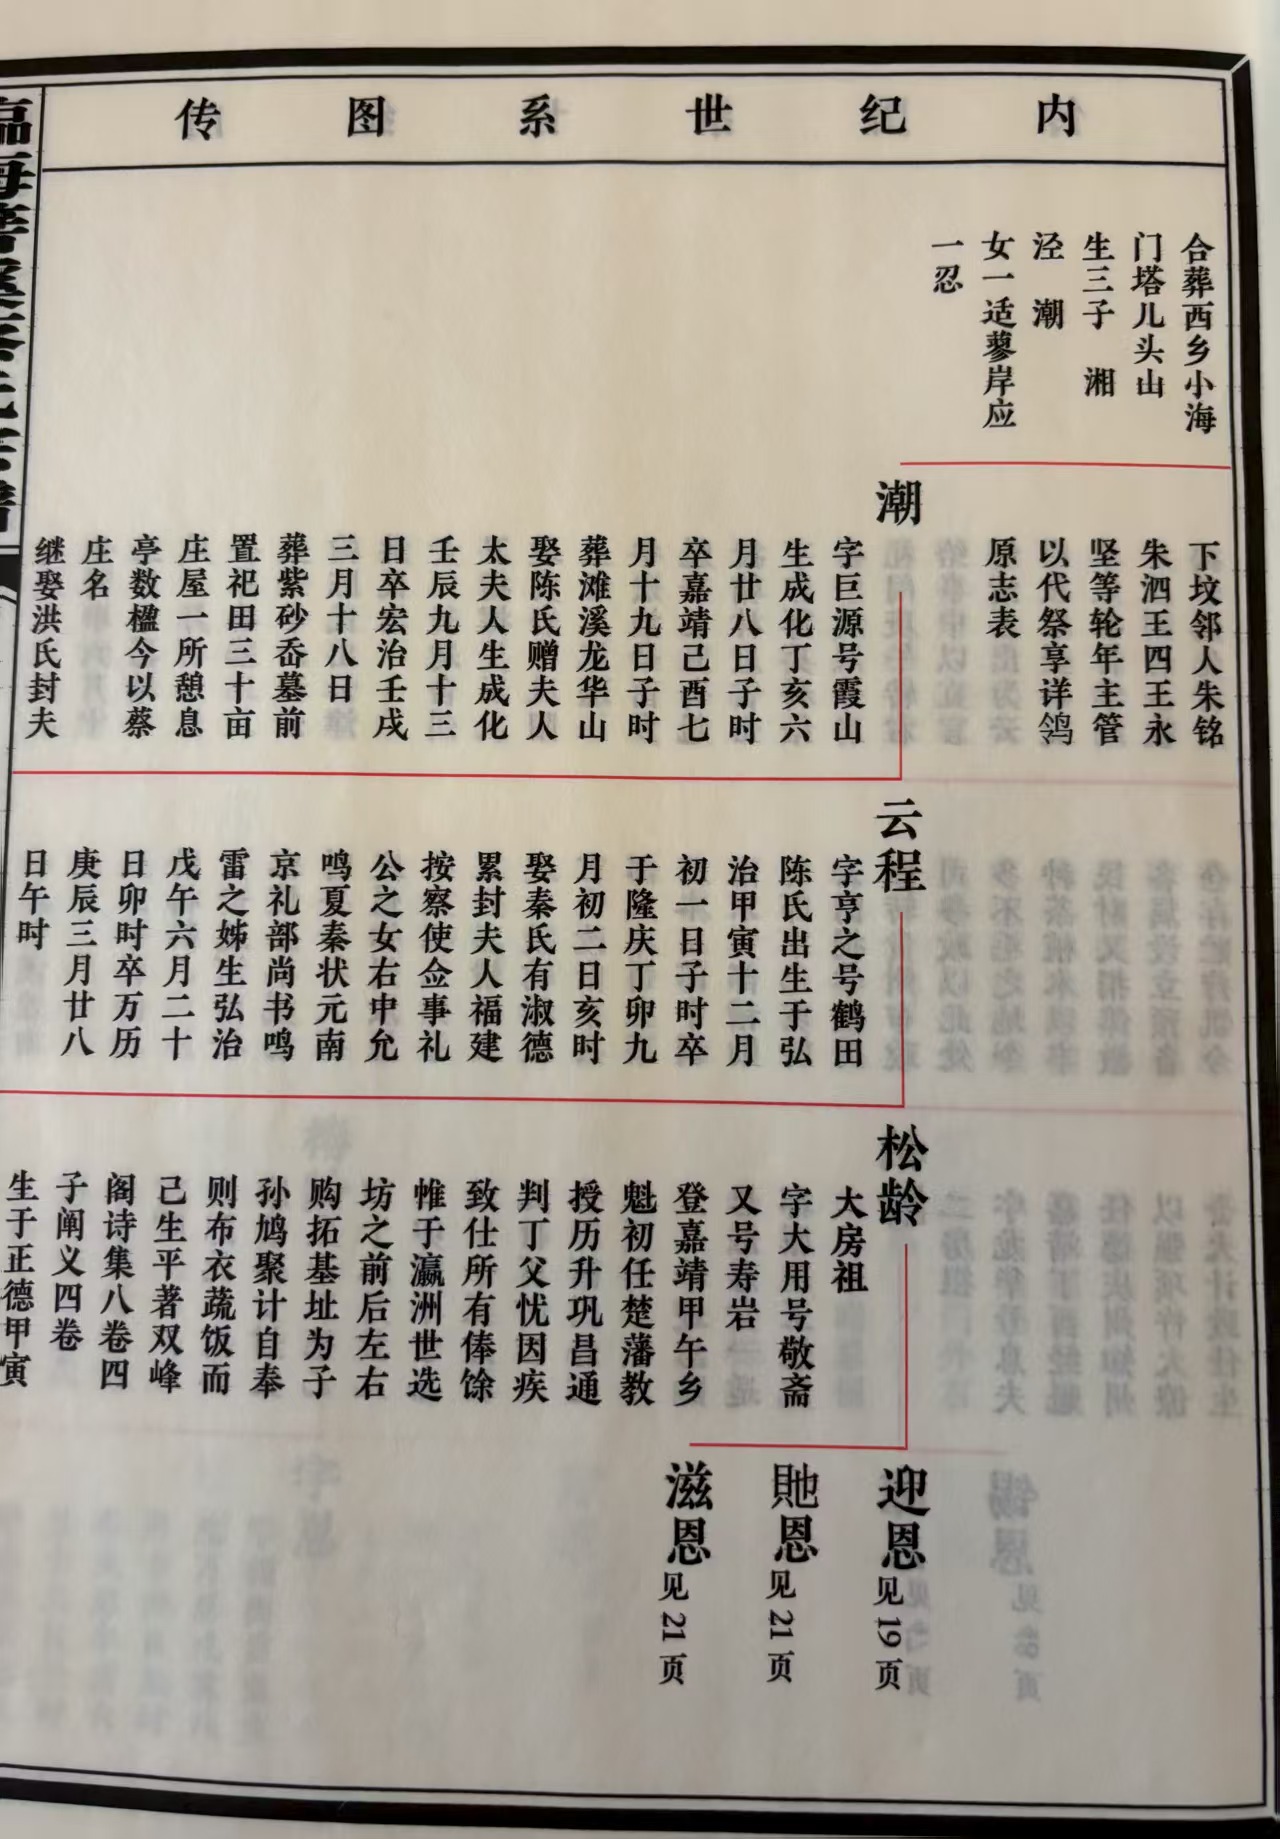 内纪世系图传
合葬西乡小海
门塔儿头山
生三子 湘
泾 潮
女一适蓼岸应
一忍
下坟邻人朱铭
朱泗王四王永
坚等轮年主管
以代祭享详鸰
原志表
潮
字巨源号霞山
生成化丁亥六
月廿八日子时
卒嘉靖己酉七
月十九日子时
葬滩溪龙华山
娶陈氏赠夫人
太夫人生成化
壬辰九月十三
日卒宏治壬戌
三月十八日
葬紫砂岙墓前
置祀田三十亩
庄屋一所憩息
亭数楹今以蔡
庄名
继娶洪氏封夫
云程
字亨之号鹤田
陈氏出生于弘
治甲寅十二月
初一日子时卒
于隆庆丁卯九
月初二日亥时
娶秦氏有淑德
累封夫人福建
按察使佥事礼
公之女右中允
鸣夏秦状元南
京礼部尚书鸣
雷之姊生弘治
戊午六月二十
日卯时卒万历
庚辰三月廿八
日午时
松龄
大房祖
字大用号敬斋
又号寿岩
登嘉靖甲午乡
魁初任楚藩教
授历升巩昌通
判丁父忧因疾
致仕所有俸馀
惟于瀛洲世选
坊之前后左右
购拓基址为子
孙鸠聚计自奉
则布衣蔬饭而
己生平著双峰
阁诗集八卷四
子阐义四卷
生于正德甲寅
迎恩见19页
貤恩见21页
滋恩见21页